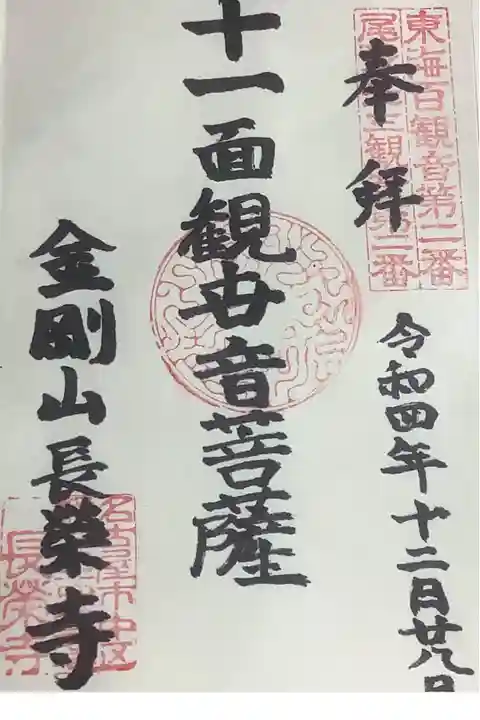 東海百観音第二番
尾 三観 第二番
奉拝
令和四年十二日廿八日
十一面観世音菩薩
金剛山長榮寺
名古屋市中区
長榮寺